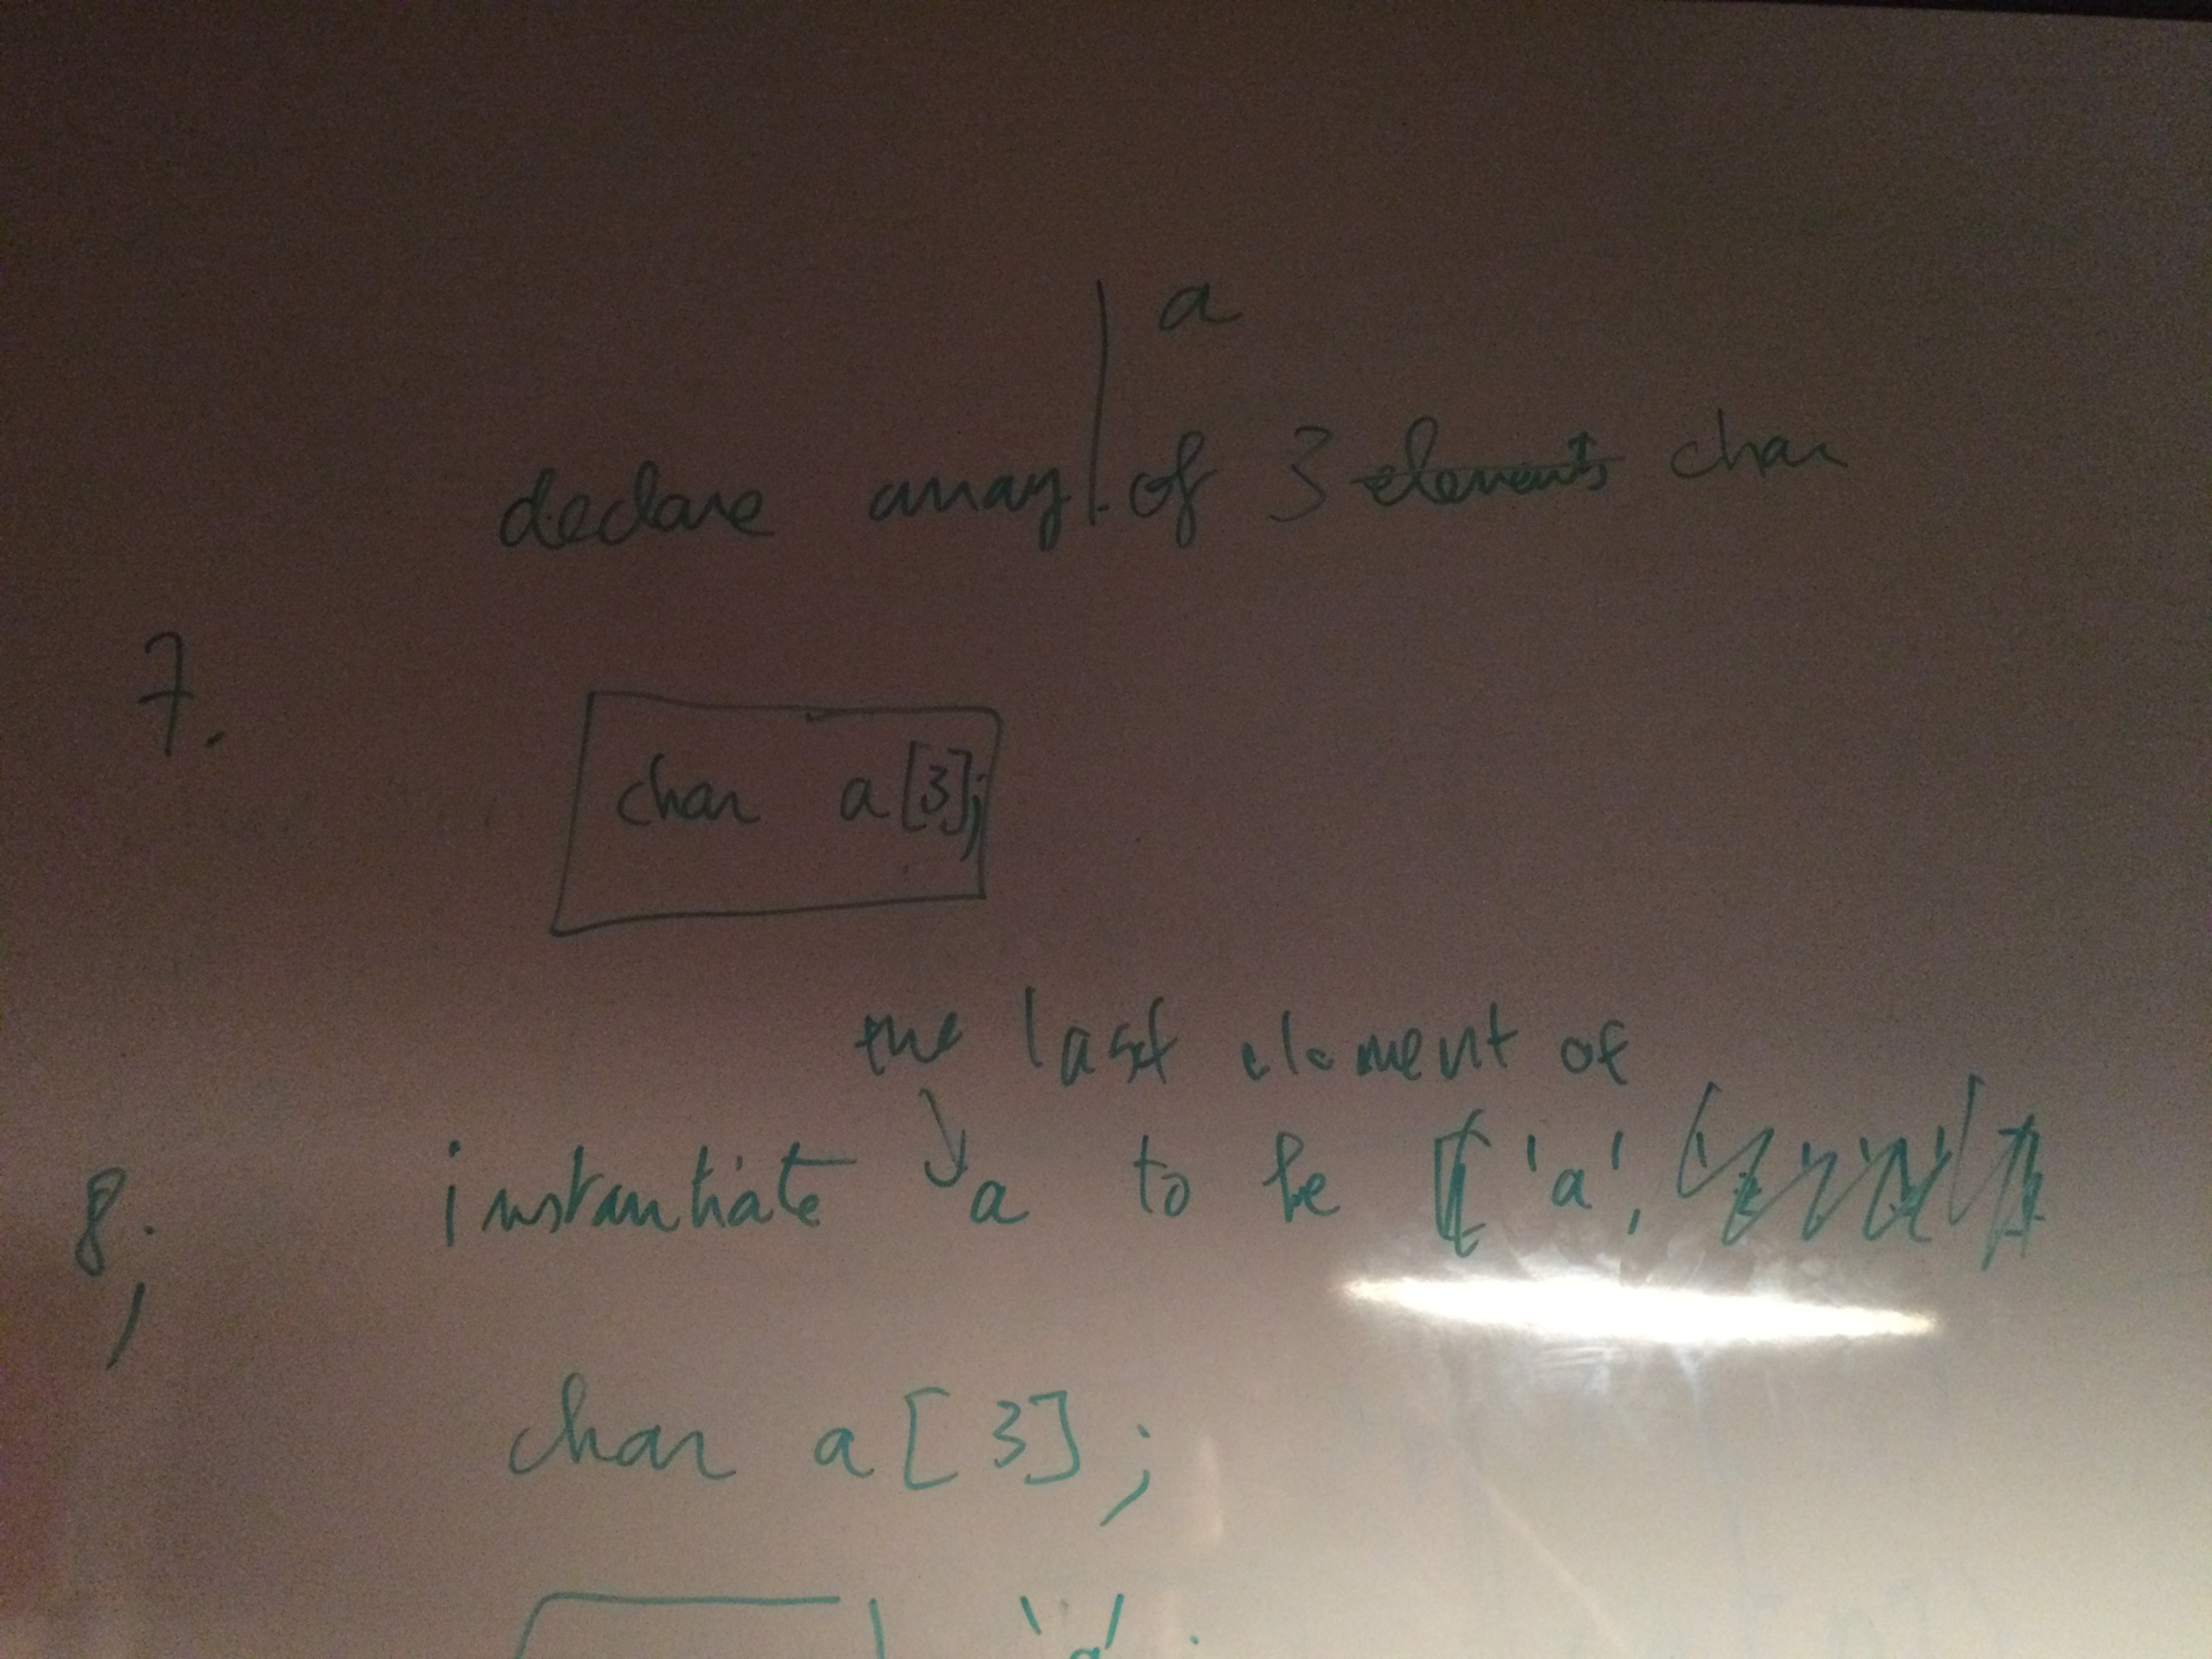 a
declare array of 3 elements char
7.
char a[3];
the last element of
8. instantiate a to be 'a',
char a[3];
'a'